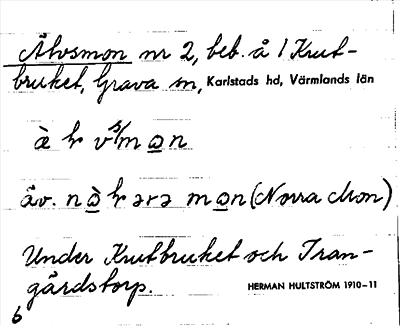 Älvsmon nr 2, beb. å 1 Krut-
bruket, Grava sn, Karlstads hd, Värmlands län
äv. (Norra Mon)
Under Krutbruket och Tran-
gärdstorp. HERMAN HULTSTRÖM 1910–11
6